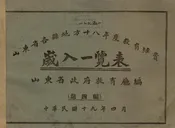 山東省各縣地方十八年度教育經費
歲入一覽表
山東省政府教育廳編
中華民國十九年四月